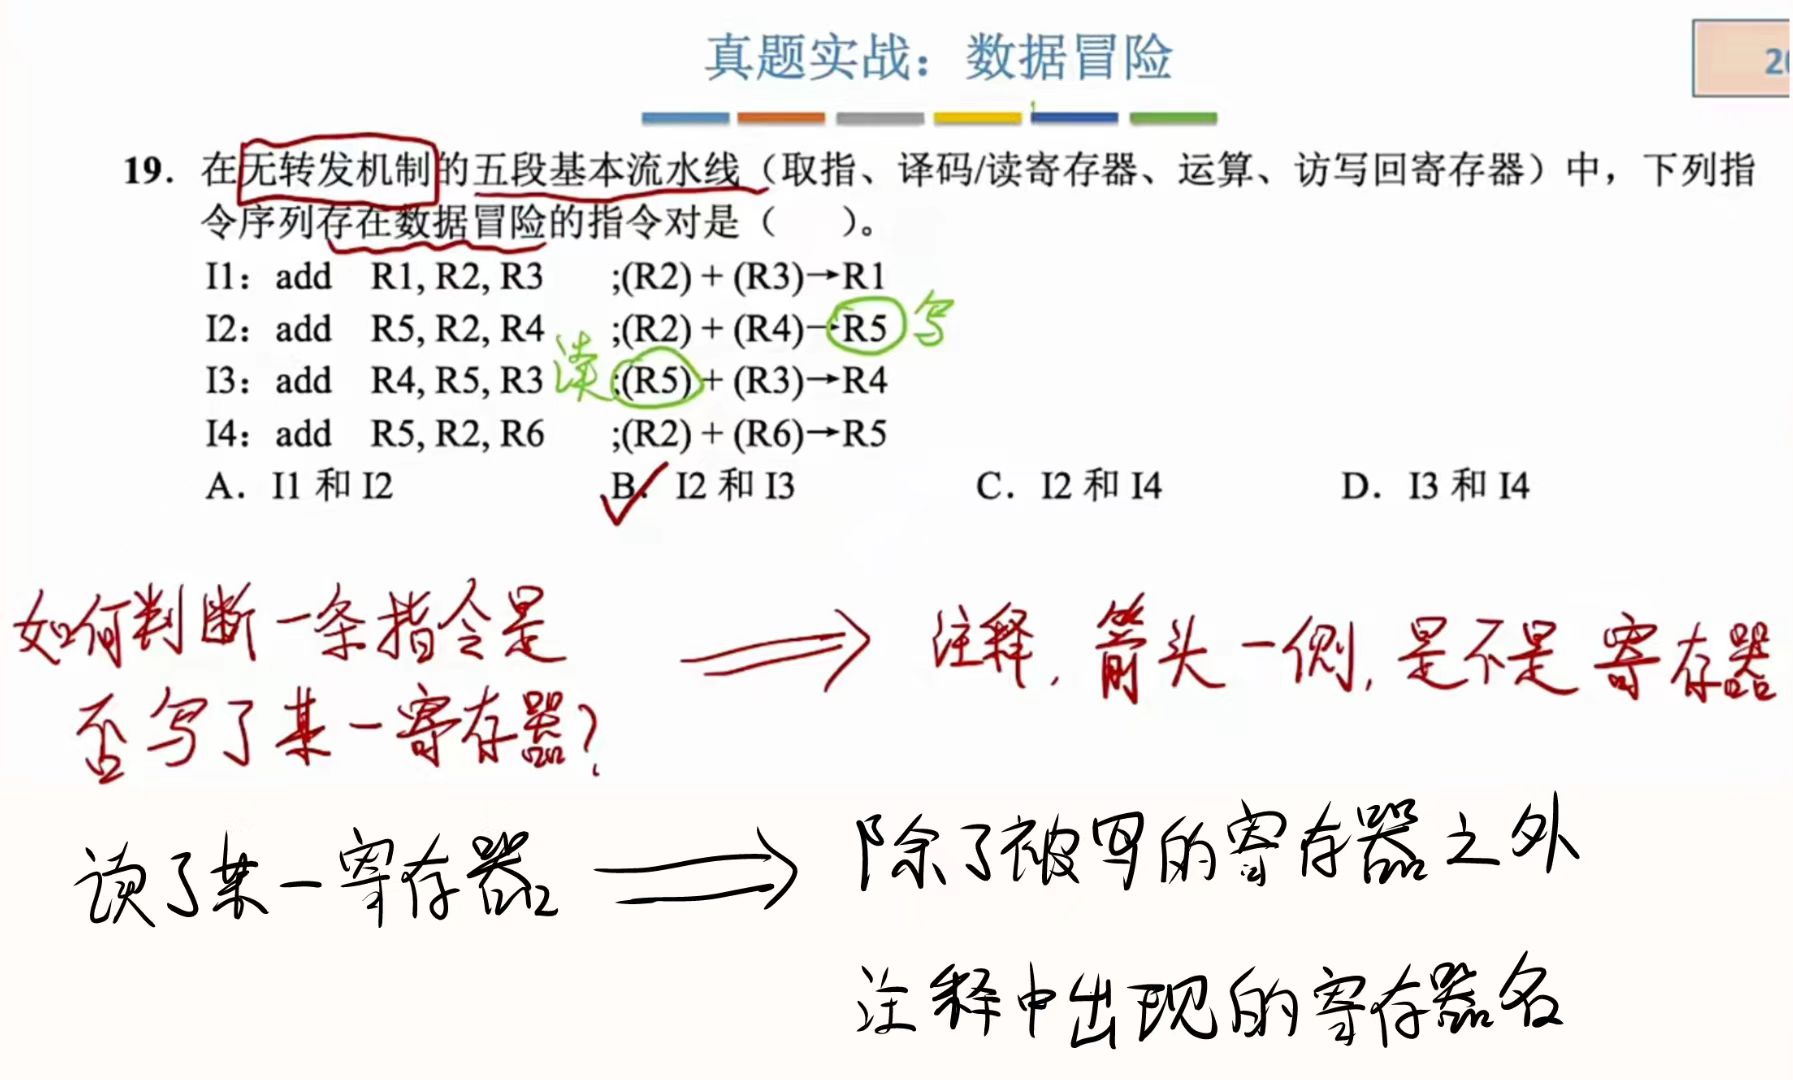 真题实战：数据冒险
19. 在无转发机制的五段基本流水线（取指、译码/读寄存器、运算、访写回寄存器）中，下列指
令序列存在数据冒险的指令对是（ ）。
I1：add R1, R2, R3 ;(R2) + (R3)→R1
I2：add R5, R2, R4 ;(R2) + (R4)→R5 写
I3：add R4, R5, R3 读 ;(R5) + (R3)→R4
I4：add R5, R2, R6 ;(R2) + (R6)→R5
A．I1 和 I2 B．I2 和 I3 C．I2 和 I4 D．I3 和 I4
如何判断一条指令是 ⟹ 注释，箭头一侧，是不是寄存器
否写了某一寄存器？
读了某一寄存器 ⟹ 除了被写的寄存器之外
注释中出现的寄存器名